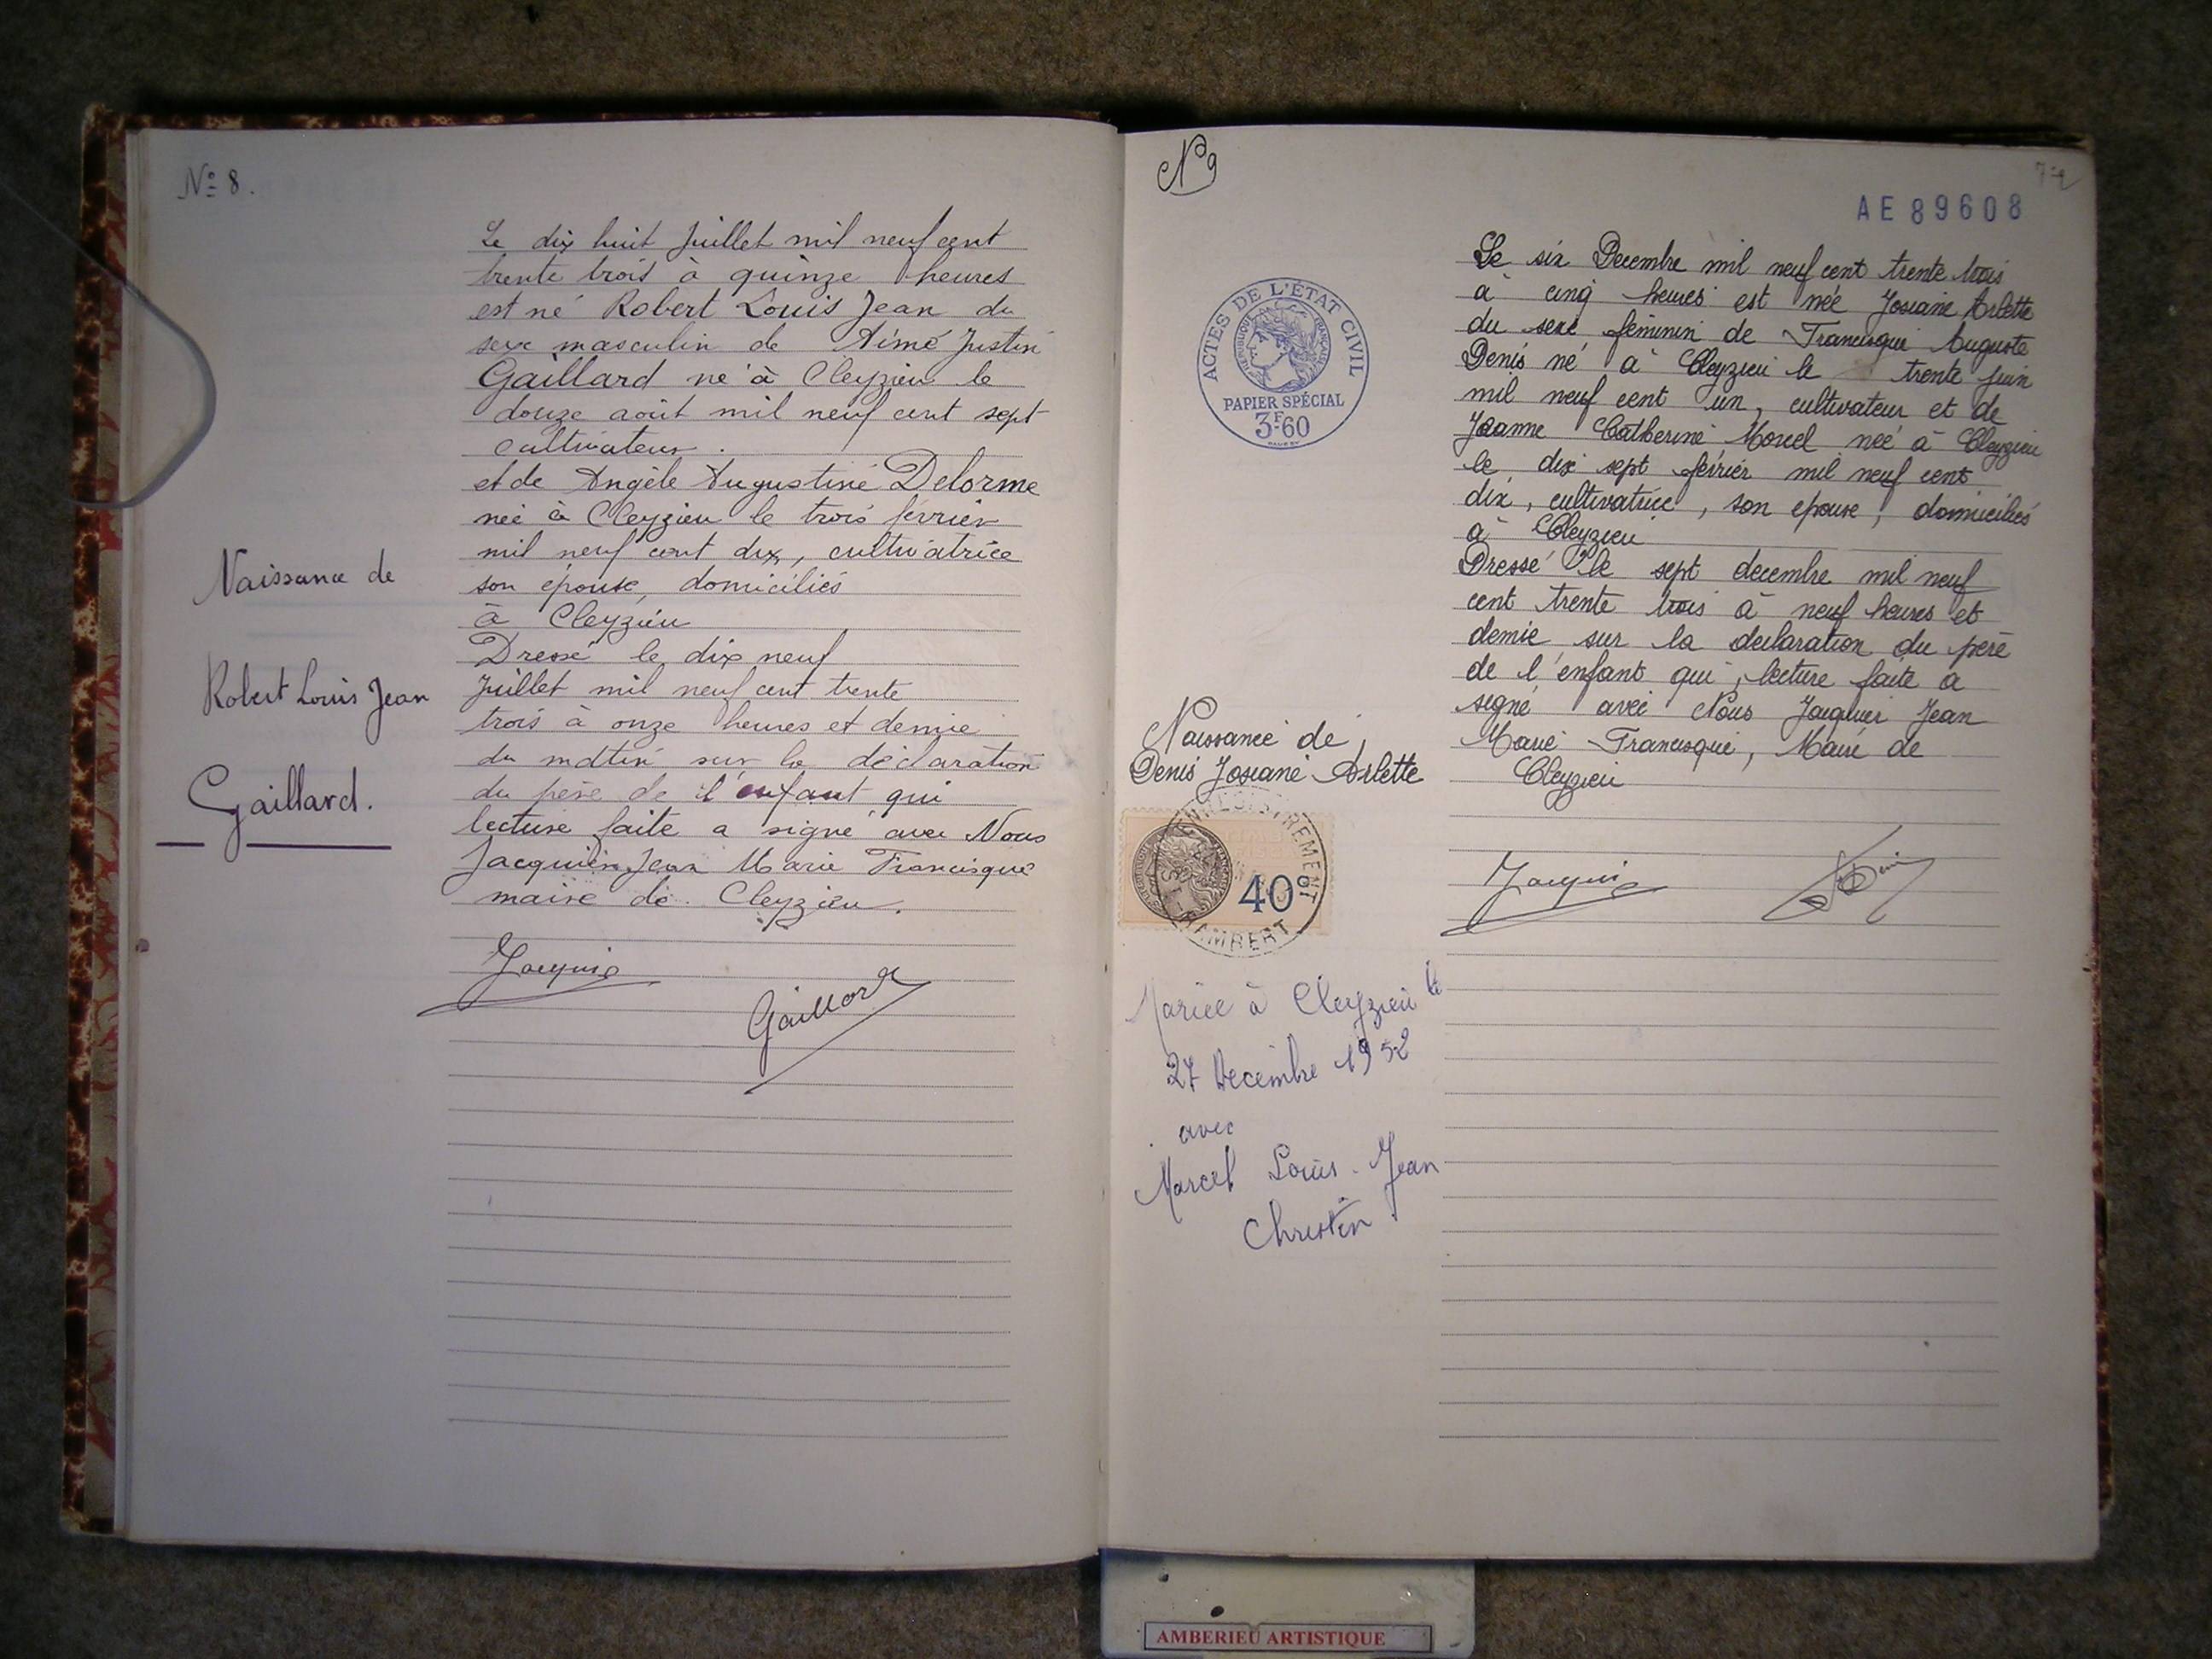 Nº 8.
Le dix huit Juillet mil neuf cent
trente trois à quinze heures
est né Robert Louis Jean du
sexe masculin de Aimé Justin
Gaillard né à Cleyzieu le
douze août mil neuf cent sept
cultivateur.
et de Angèle Augustine Delorme
née à Cleyzieu le trois février
mil neuf cent dix, cultivatrice
son épouse, domiciliés
à Cleyzieu
Dressé le dix neuf
Juillet mil neuf cent trente
trois à onze heures et demie
du matin sur la déclaration
du père de l'enfant qui
lecture faite a signé avec Nous
Jacquin Jean Marie Francisque
maire de Cleyzieu.
Naissance de
Robert Louis Jean
Gaillard.
Jacquin
Gaillard
Nº 9
AE 89608
ACTES DE L'ÉTAT CIVIL
RÉPUBLIQUE FRANÇAISE
PAPIER SPÉCIAL
3F.60
Le six Decembre mil neuf cent trente trois
à cinq heures est née Josiane Arlette
du sexe féminin de Francisque Auguste
Denis né à Cleyzieu le trente juin
mil neuf cent un, cultivateur et de
Jeanne Catherine Morel née à Cleyzieu
le dix sept février mil neuf cent
dix, cultivatrice, son epouse, domiciliés
à Cleyzieu
Dressé le sept decembre mil neuf
cent trente trois à neuf heures et
demie sur la declaration du père
de l'enfant qui, lecture faite a
signé avec Nous Jacquin Jean
Marie Francisque, Maire de
Cleyzieu
Naissance de
Denis Josiane Arlette
ENREGISTREMENT
40c
RAMBERT
Jacquin
Denis
Mariée à Cleyzieu le
27 Decembre 1952
avec
Marcel Louis-Jean
Christin
AMBERIEU ARTISTIQUE